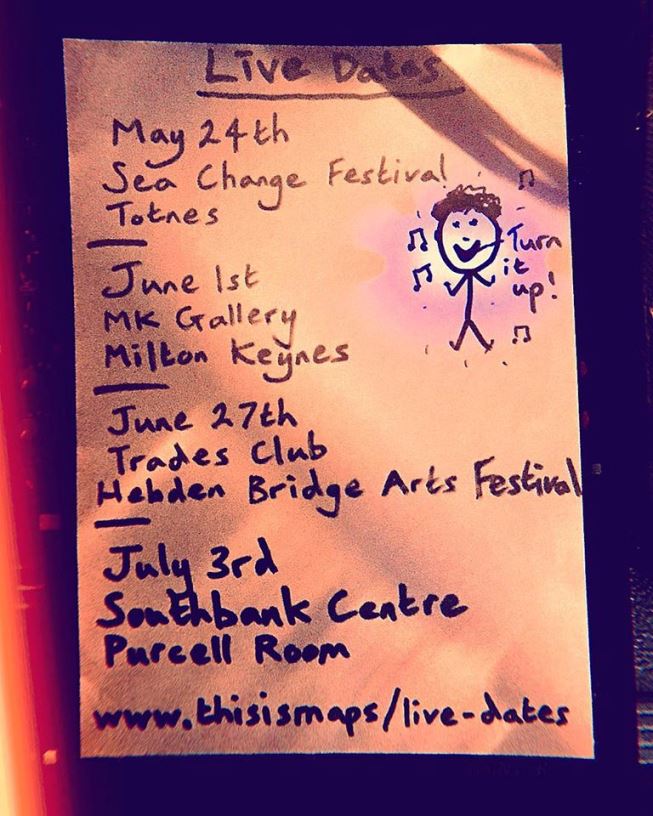 Live Dates
May 24th
Sea Change Festival
Totnes
June 1st
MK Gallery
Milton Keynes
Turn
it
up!
June 27th
Trades Club
Hebden Bridge Arts Festival
July 3rd
Southbank Centre
Purcell Room
www.thisismaps/live-dates